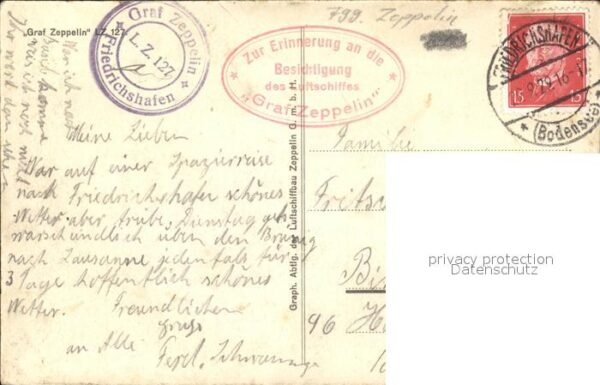 „Graf Zeppelin" LZ 127
Graf Zeppelin
L. Z. 127
Friedrichshafen
799. Zeppelin
Zur Erinnerung an die
Besichtigung
des Luftschiffes
„Graf Zeppelin"
FRIEDRICHSHAFEN
(Bodensee)
15 15
Meine Lieben
War auf einer Spazierreise
nach Friedrichshafen schönes
Wetter aber trübe, Dienstag geht
warscheindlich über den Brünig
nach Lausanne jedenfals für
3 Tage hoffentlich schönes
Wetter. Freundlichen
Gruss
an Alle Ferd.
Graph. Abtlg. des Luftschiffbau Zeppelin G. m. b. H.
Familie
Fritsc
Bi
96 H
privacy protection
Datenschutz